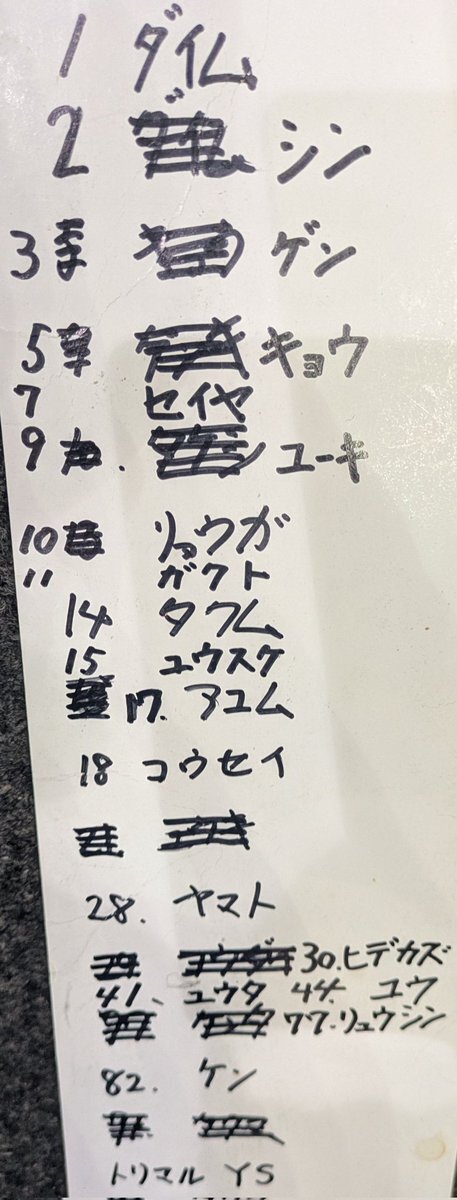 1 ダイム
2 シン
3 ゲン
5 キョウ
7 セイヤ
9 . ユーキ
10 リョウガ
11 ガクト
14 タクム
15 ユウスケ
17. アユム
18 コウセイ
28. ヤマト
30.ヒデカズ
41. ユウタ 44 ユウ
77.リュウシン
82. ケン
トリマル YS